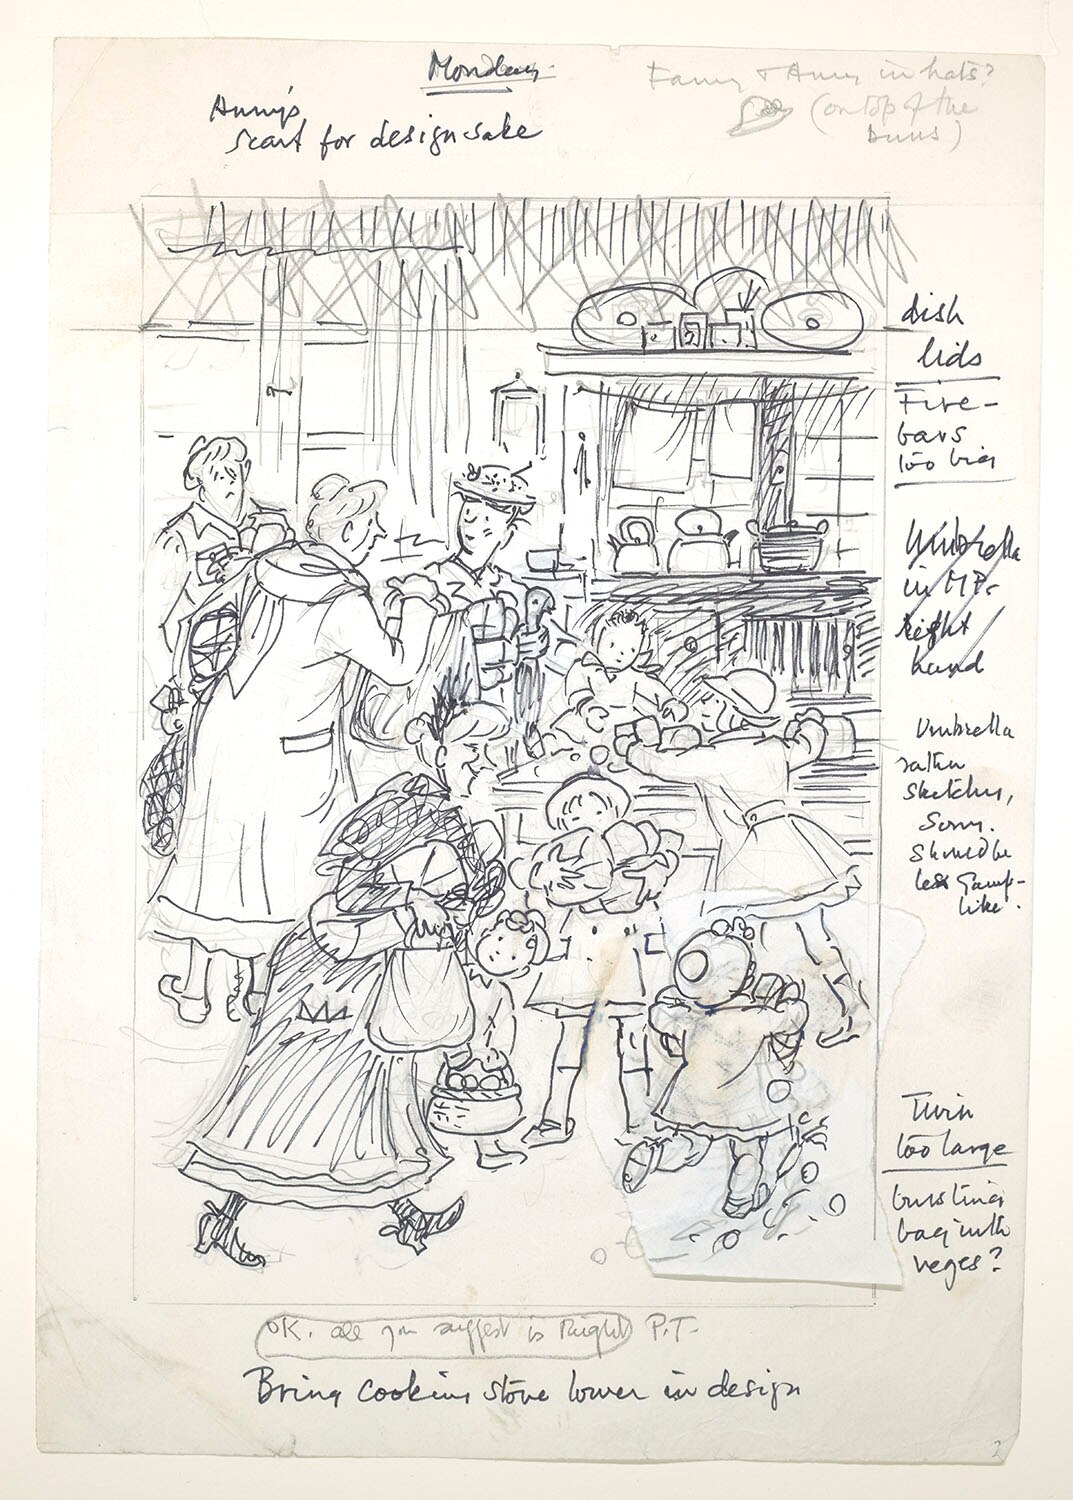 Monday
Fanny & Anny in hats?
(on top of the
buns)
Anny's
scarf for design sake
dish
lids
Fire-
bars
too big
Umbrella
in MP.
right
hand
Umbrella
rather
sketchy,
sorry.
Should be
less Gamp-
like.
Twin
too large
bursting
bag with
veges?
OK. all you suggest is Right P.T.
Bring cooking stove lower in design
2